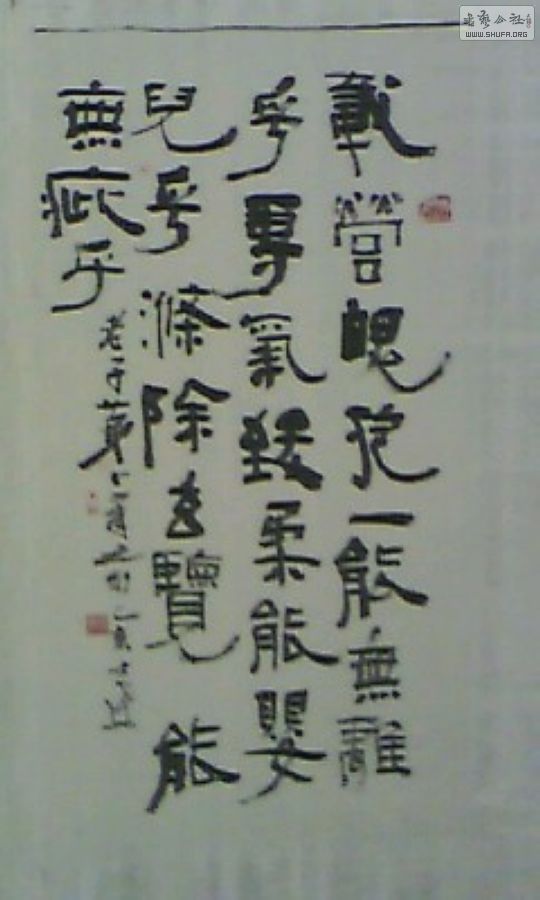 載營魄抱一能無離
乎專氣致柔能嬰
兒乎滌除玄覽能
無疵乎
老子
书艺公社
WWW.SHUFA.ORG